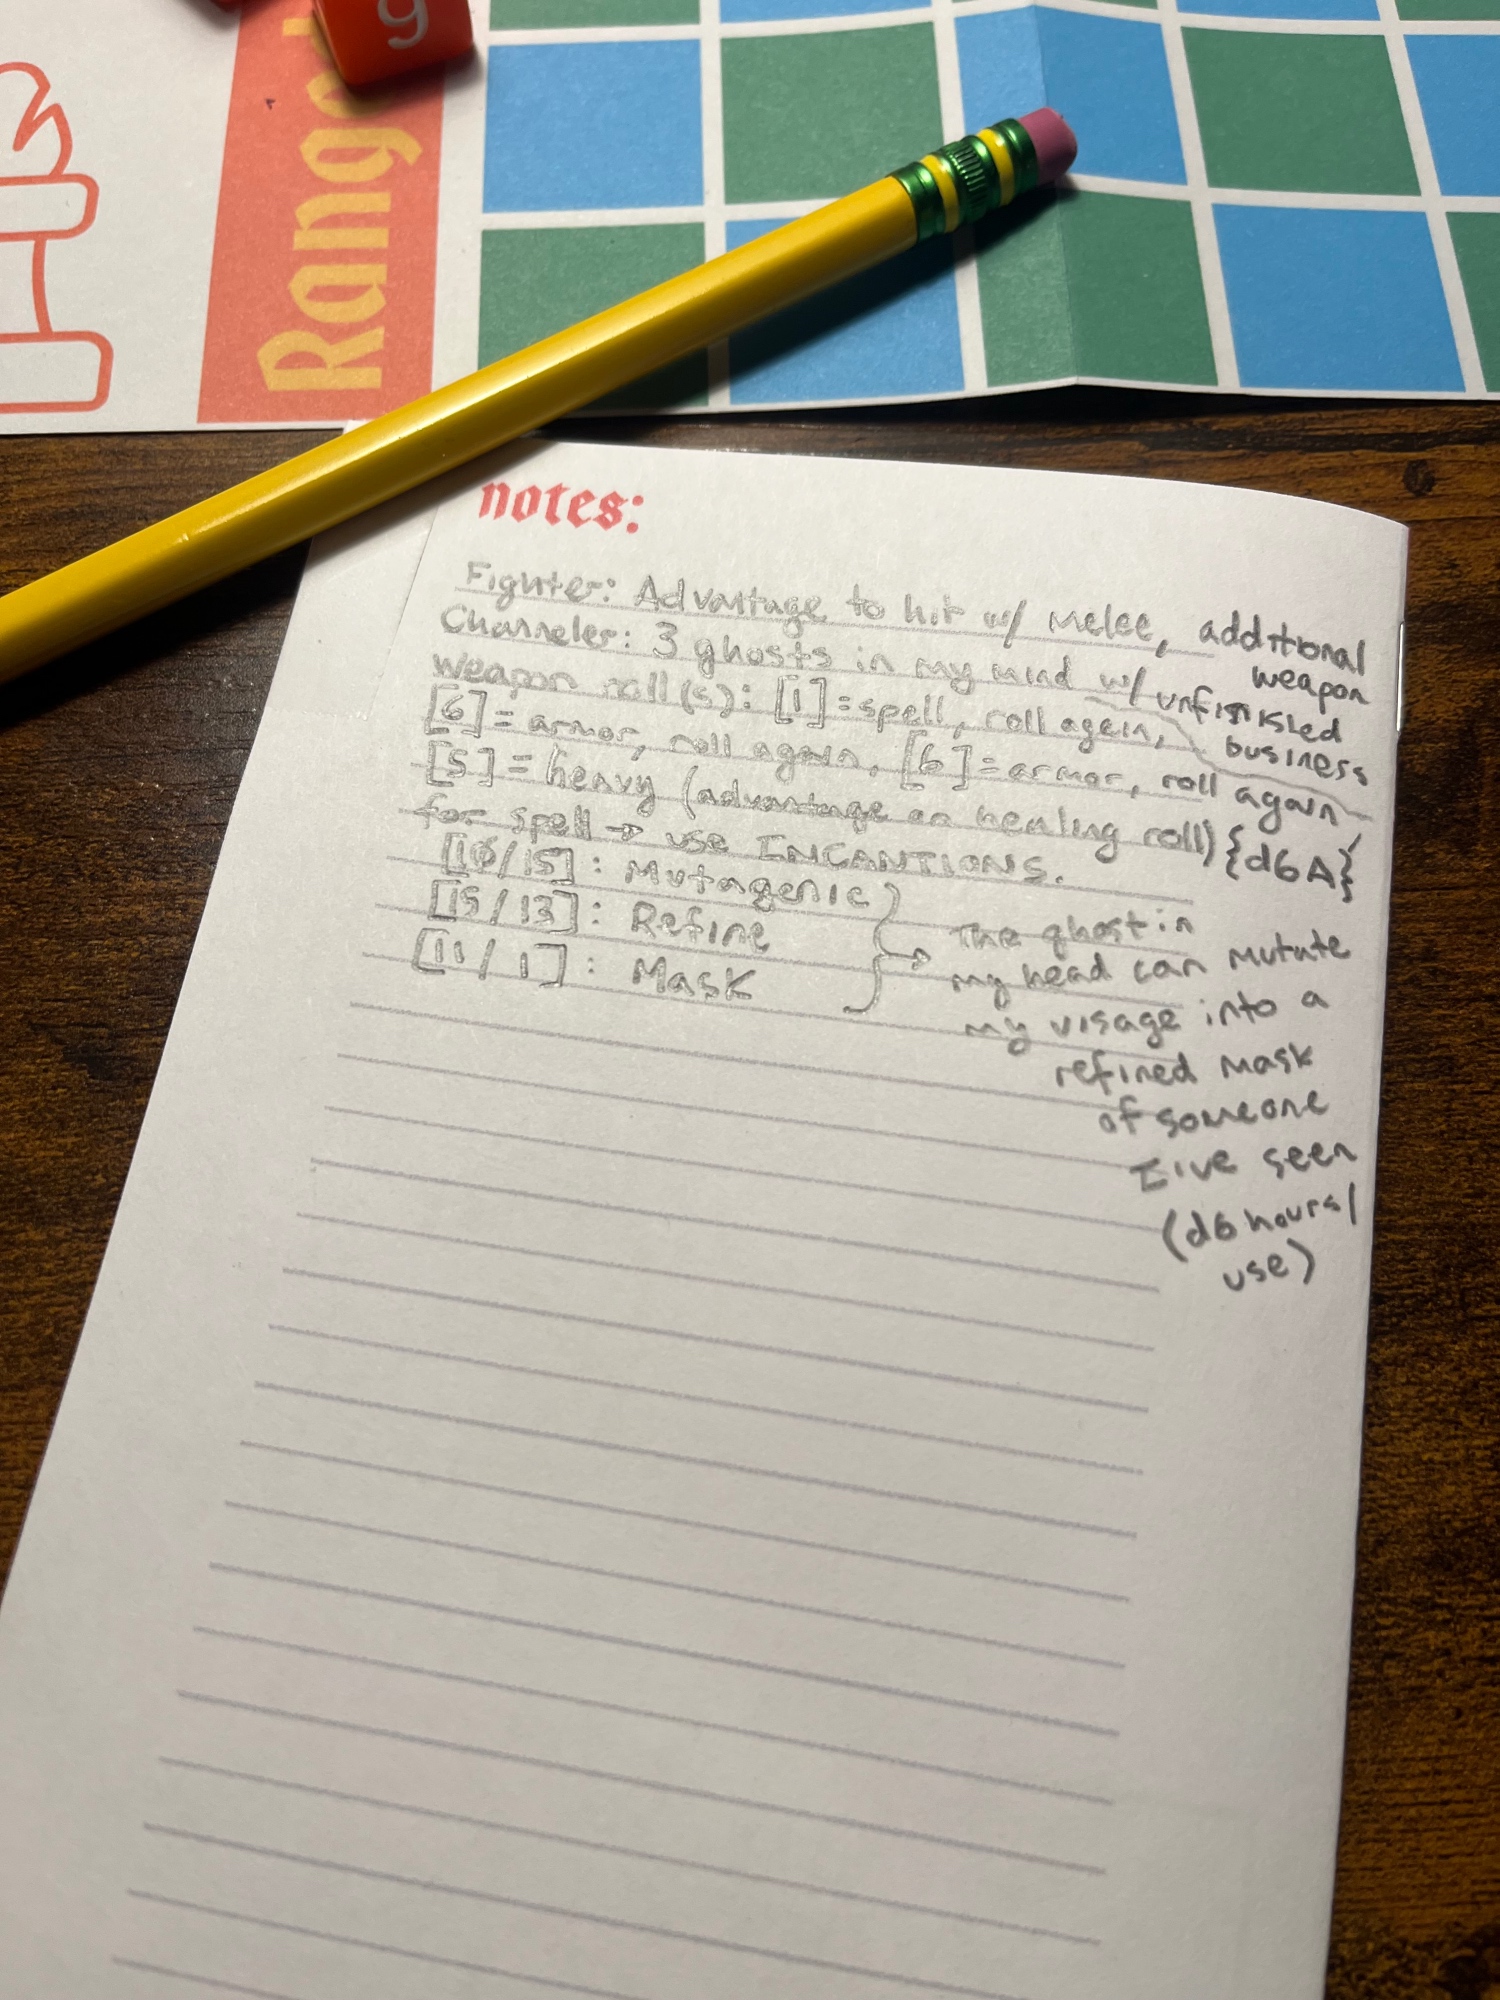 9
Range
notes:
Fighter: Advantage to hit w/ melee, additional weapon
Channeler: 3 ghosts in my mind w/ unfinished business
weapon roll(s): [1]=spell, roll again,
[6]= armor, roll again, [6]=armor, roll again,
[5]= heavy (advantage on healing roll) {d6A}
for spell → use INCANTIONS.
[16/15]: Mutagenic
[15/13]: Refine
[11/1]: Mask
The ghost in
my head can mutate
my visage into a
refined mask
of someone
I've seen
(d6 hours/
use)